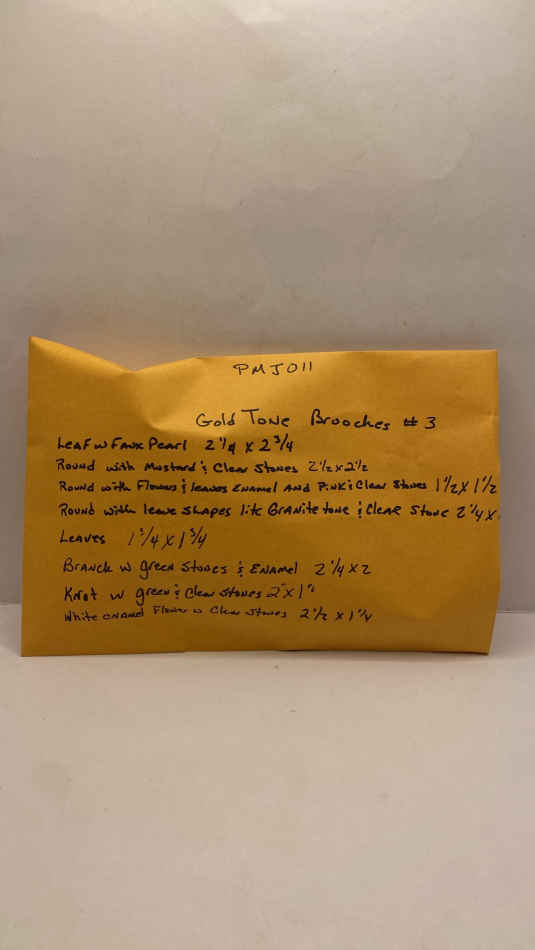 PMJ011
Gold Tone Brooches # 3
Leaf w Faux Pearl 2 1/4 x 2 3/4
Round with Mustard & Clear Stones 2 1/2 x 2 1/2
Round with Flowers & leaves Enamel AND Pink & Clear Stones 1 1/2 x 1 1/2
Round with leave shapes lite Granite tone & Clear Stone 2 1/4 x
Leaves 1 3/4 x 1 3/4
Branch w green Stones & Enamel 2 1/4 x 2
Knot w green & Clear Stones 2" x 1"
White enamel Flower w Clear Stones 2 1/2 x 1 1/4